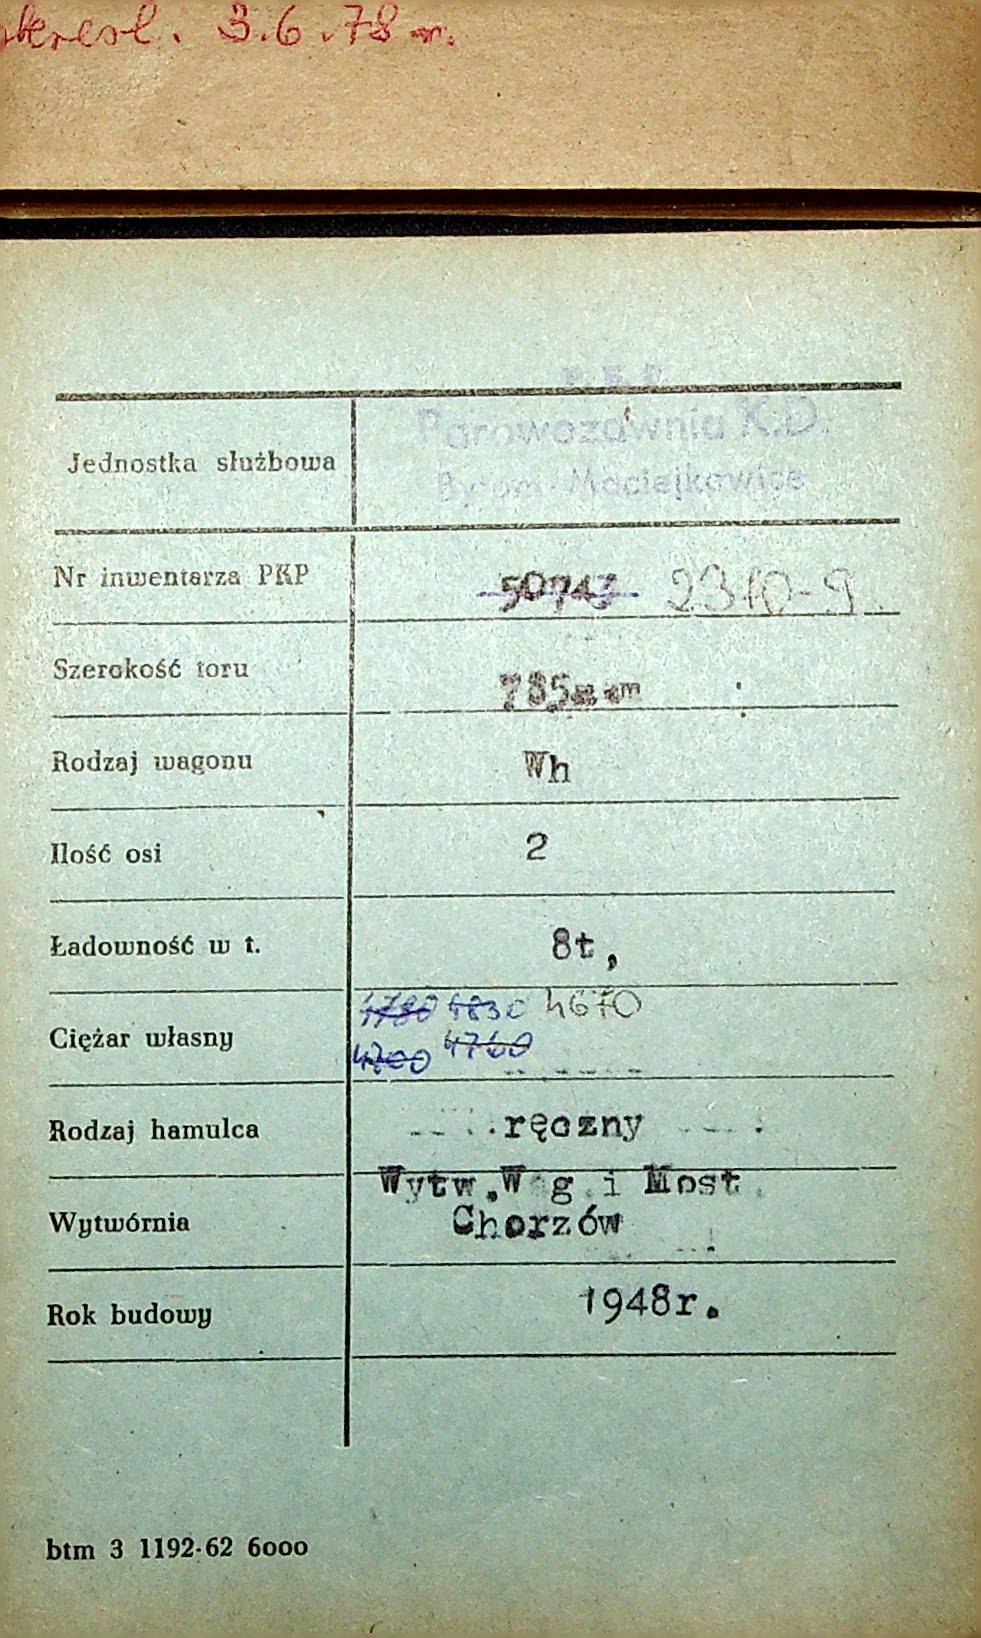 3.6.78 r.
P.K.P.
Parowozownia K.D.
Bytom-Maciejkowice
Jednostka służbowa
Nr inwentarza PKP 50743 2310-9
Szerokość toru 785 mm
Rodzaj wagonu Wh
Ilość osi 2
Ładowność w t. 8t,
4780 4830 4670
Ciężar własny
4700 4760
Rodzaj hamulca ręczny
Wytw.Wag i Most
Wytwórnia Chorzów
Rok budowy 1948r.
btm 3 1192-62 6000